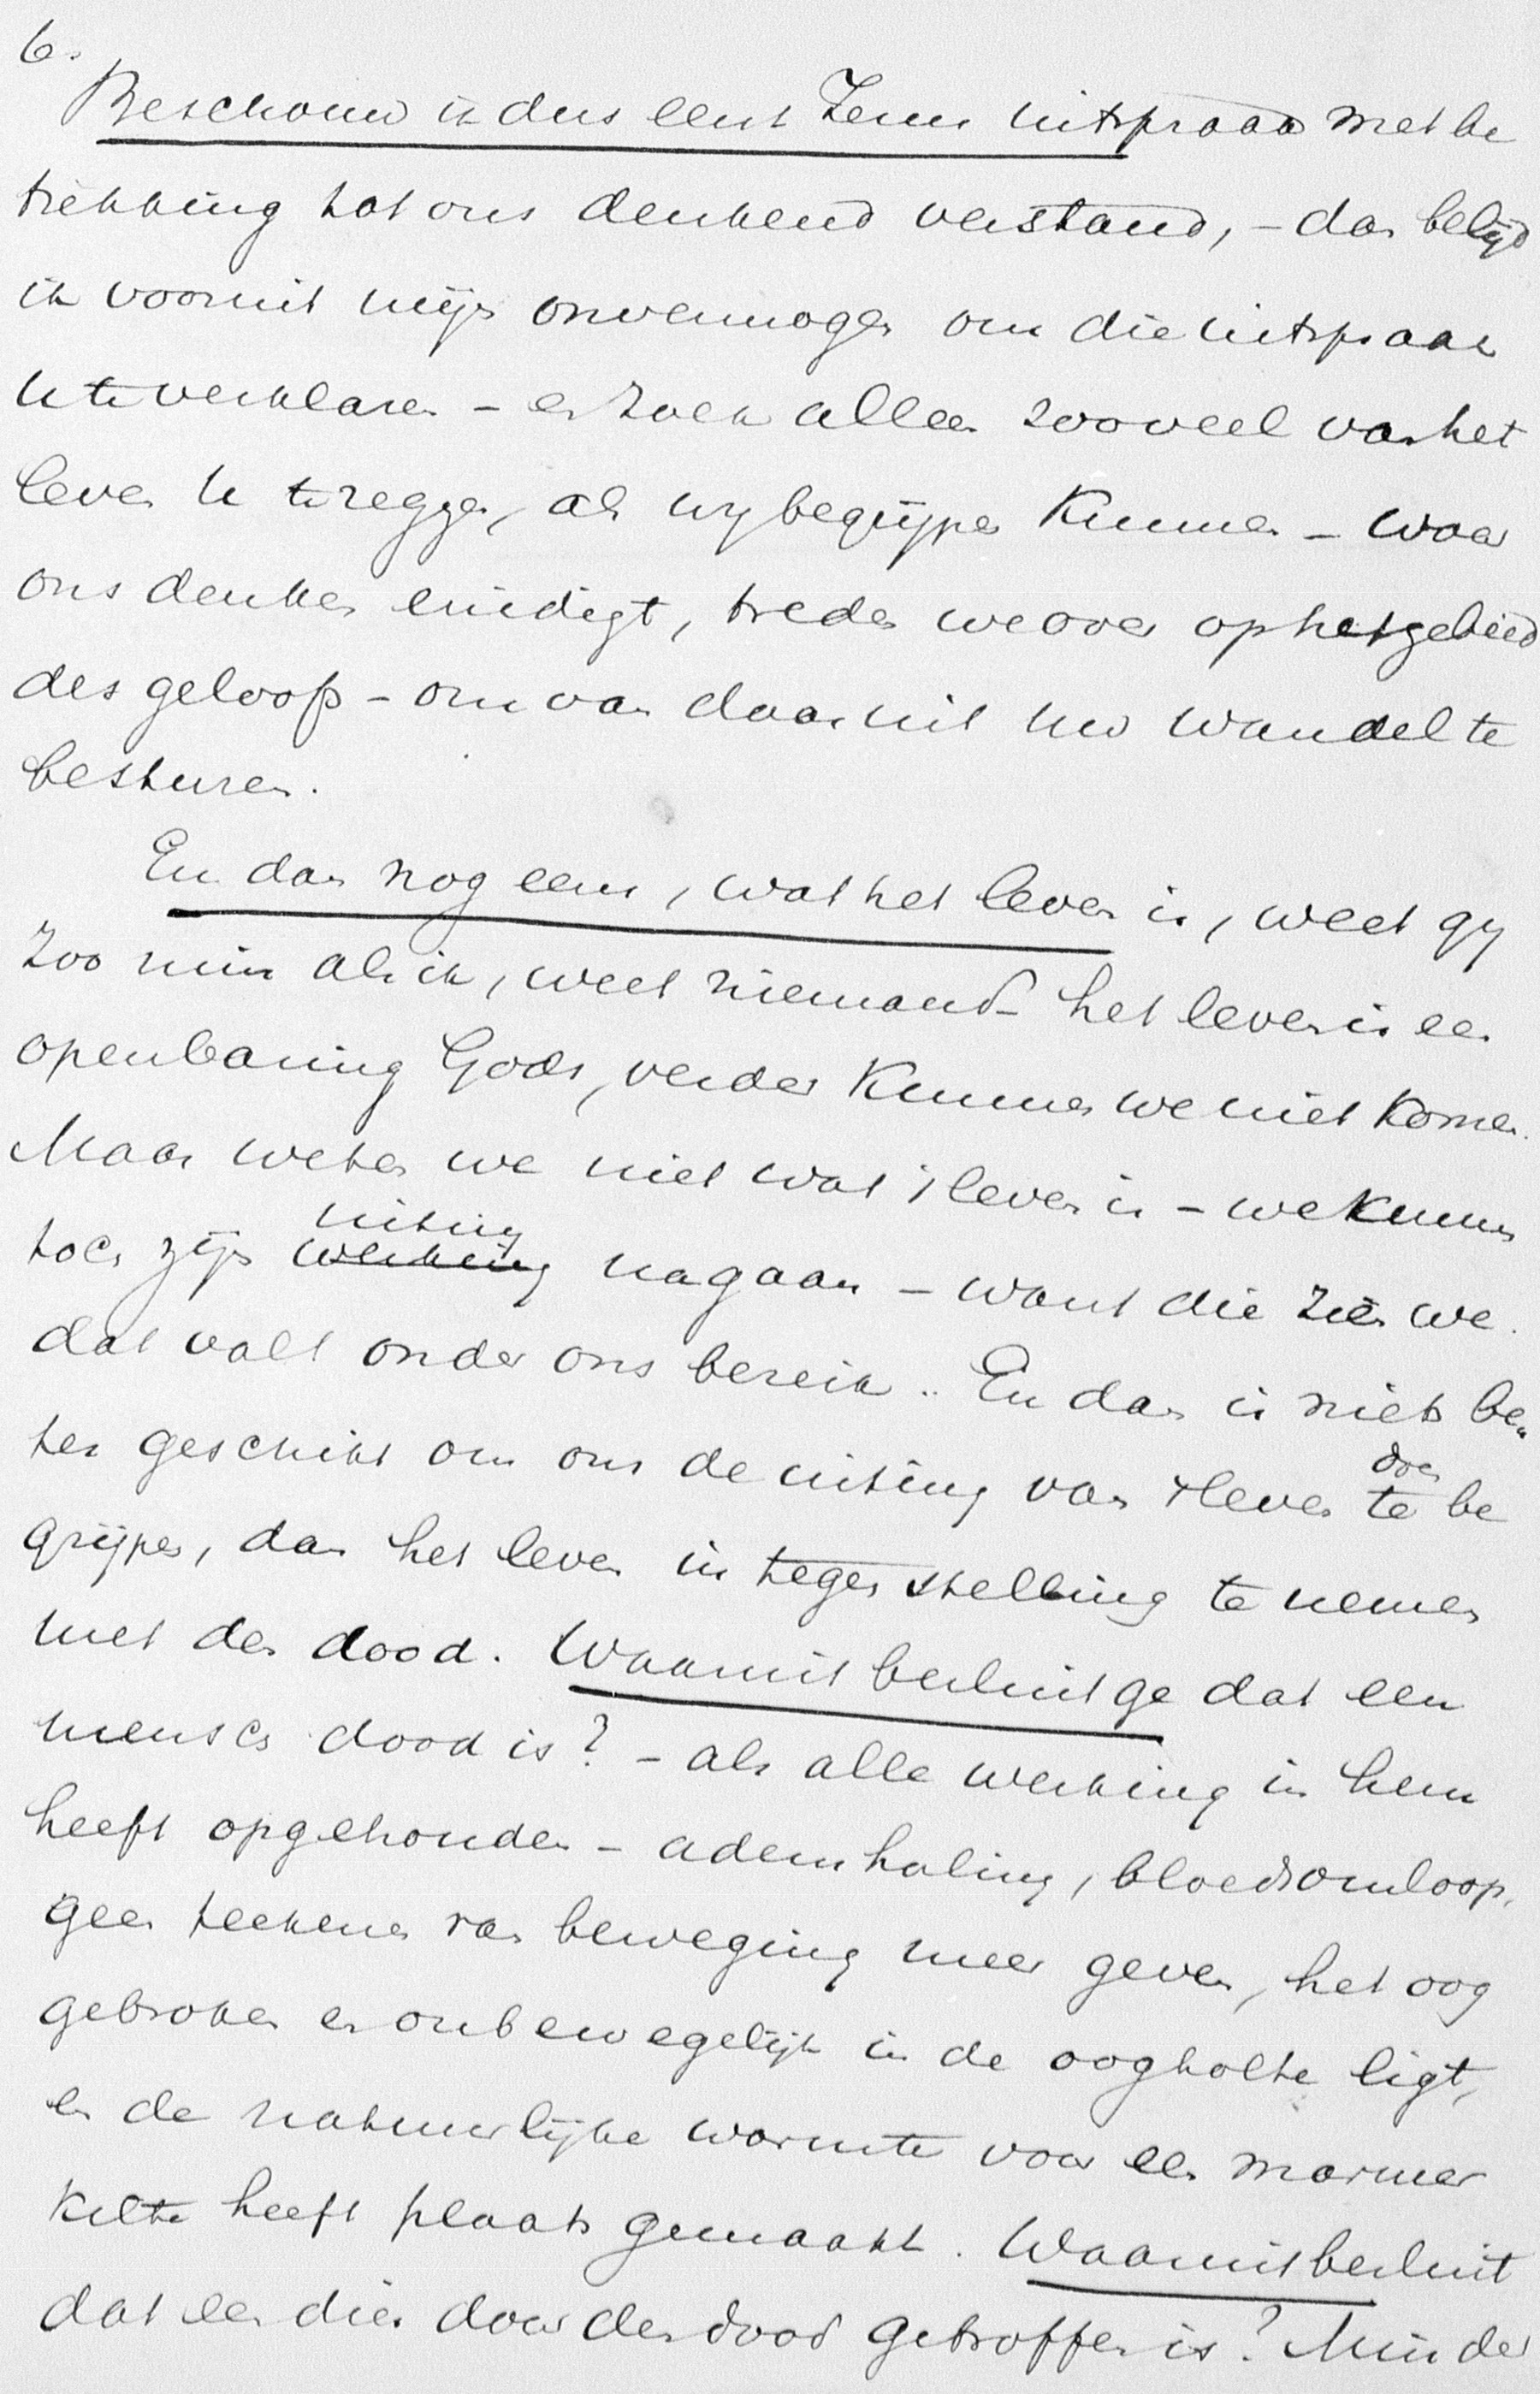 6.
Beschouw ik dus eerst Zenu uitspraak met be
trekking tot ons denkend verstand, – dan belijd
ik vooruit mijn onvermogen om die uitspraak
U te verklaren – en zoek alleen zooveel van het
leven U te zeggen, als wy begrijpen kunnen – waar
ons denken eindigt, treden we over op het gebied
des geloofs – om van daar uit uw wandel te
besturen.
En dan nog eens, wat het leven is, weet gy
zoo min als ik, weet niemand – het leven is een
openbaring Gods, verder kunnen we niet komen.
Maar weten we niet wat 't leven is – we kunnen
uiting
toch zijn werking nagaan – want die zien we.
dat valt onder ons bereik.. En dan is niets be„
doen
ter geschikt om ons de uiting van 't leven te be
grijpen, dan het leven in tegenstelling te nemen
met den dood. Waaruit besluit ge dat een
mensch dood is? – als alle werking in hem
heeft opgehouden – ademhaling, bloedsomloop,
geen teekenen van beweging meer geven, het oog
gebroken en onbewegelijk in de oogholte ligt,
en de natuurlijke warmte voor een marmer
kilte heeft plaats gemaakt. Waaruit besluit
dat een dier door den dood getroffen is? Minder